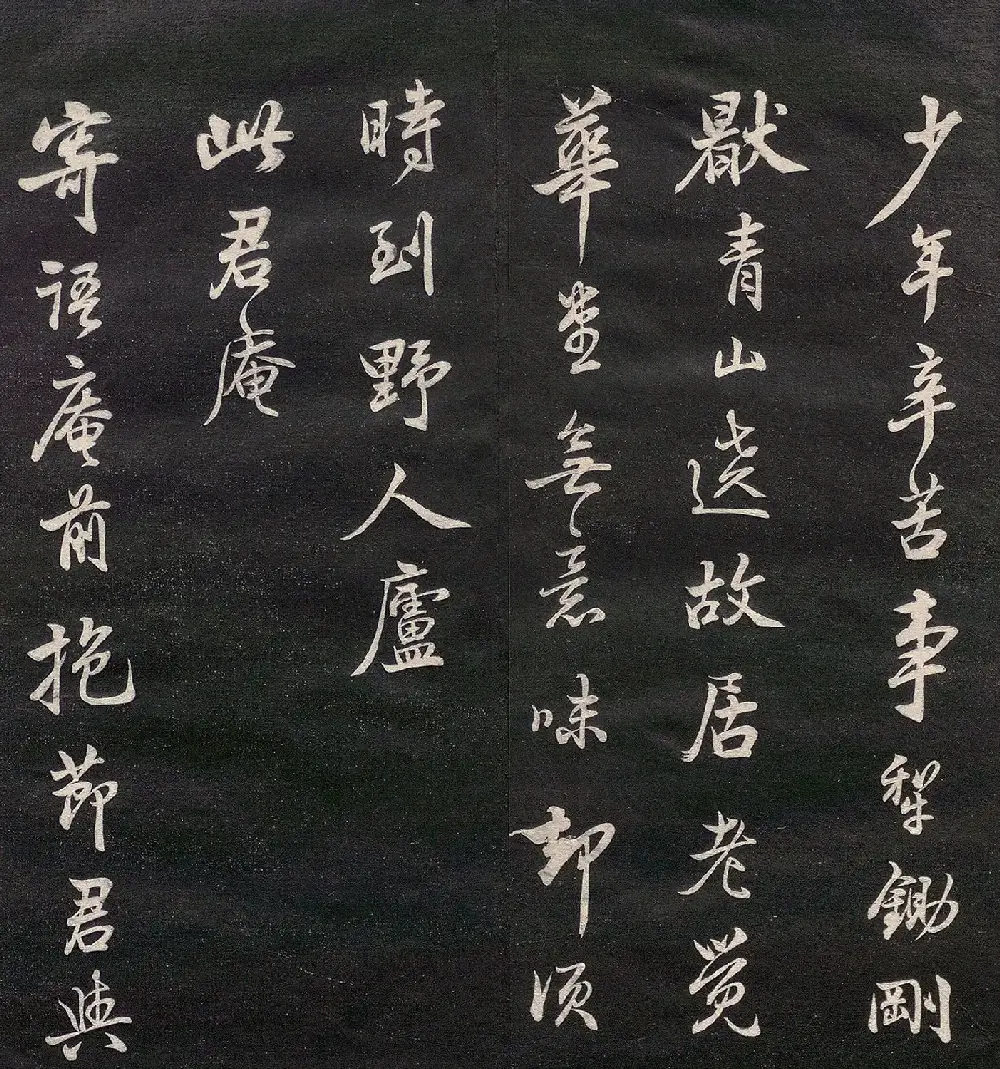 少年辛苦事犁鋤剛
厭青山遶故居老覺
華堂無意味却須
時到野人廬
此君庵
寄語庵前抱節君與